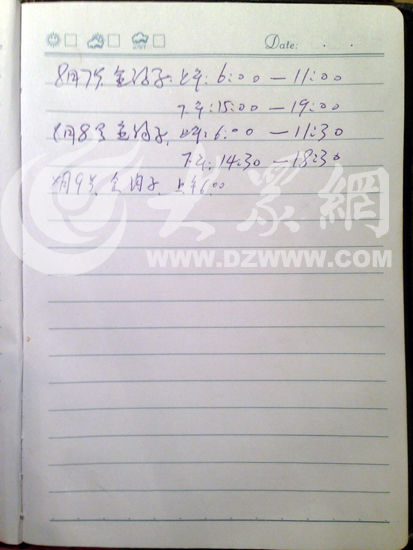 Date: . .
8月7号 金沟子: 上午: 6:00 — 11:00
下午: 15:00 — 19:00
8月8号 金沟子, 上午: 6:00 — 11:30
下午: 14:30 — 18:30
8月9号, 金沟子, 上午6:00
大眾網
WWW.DZWWW.COM